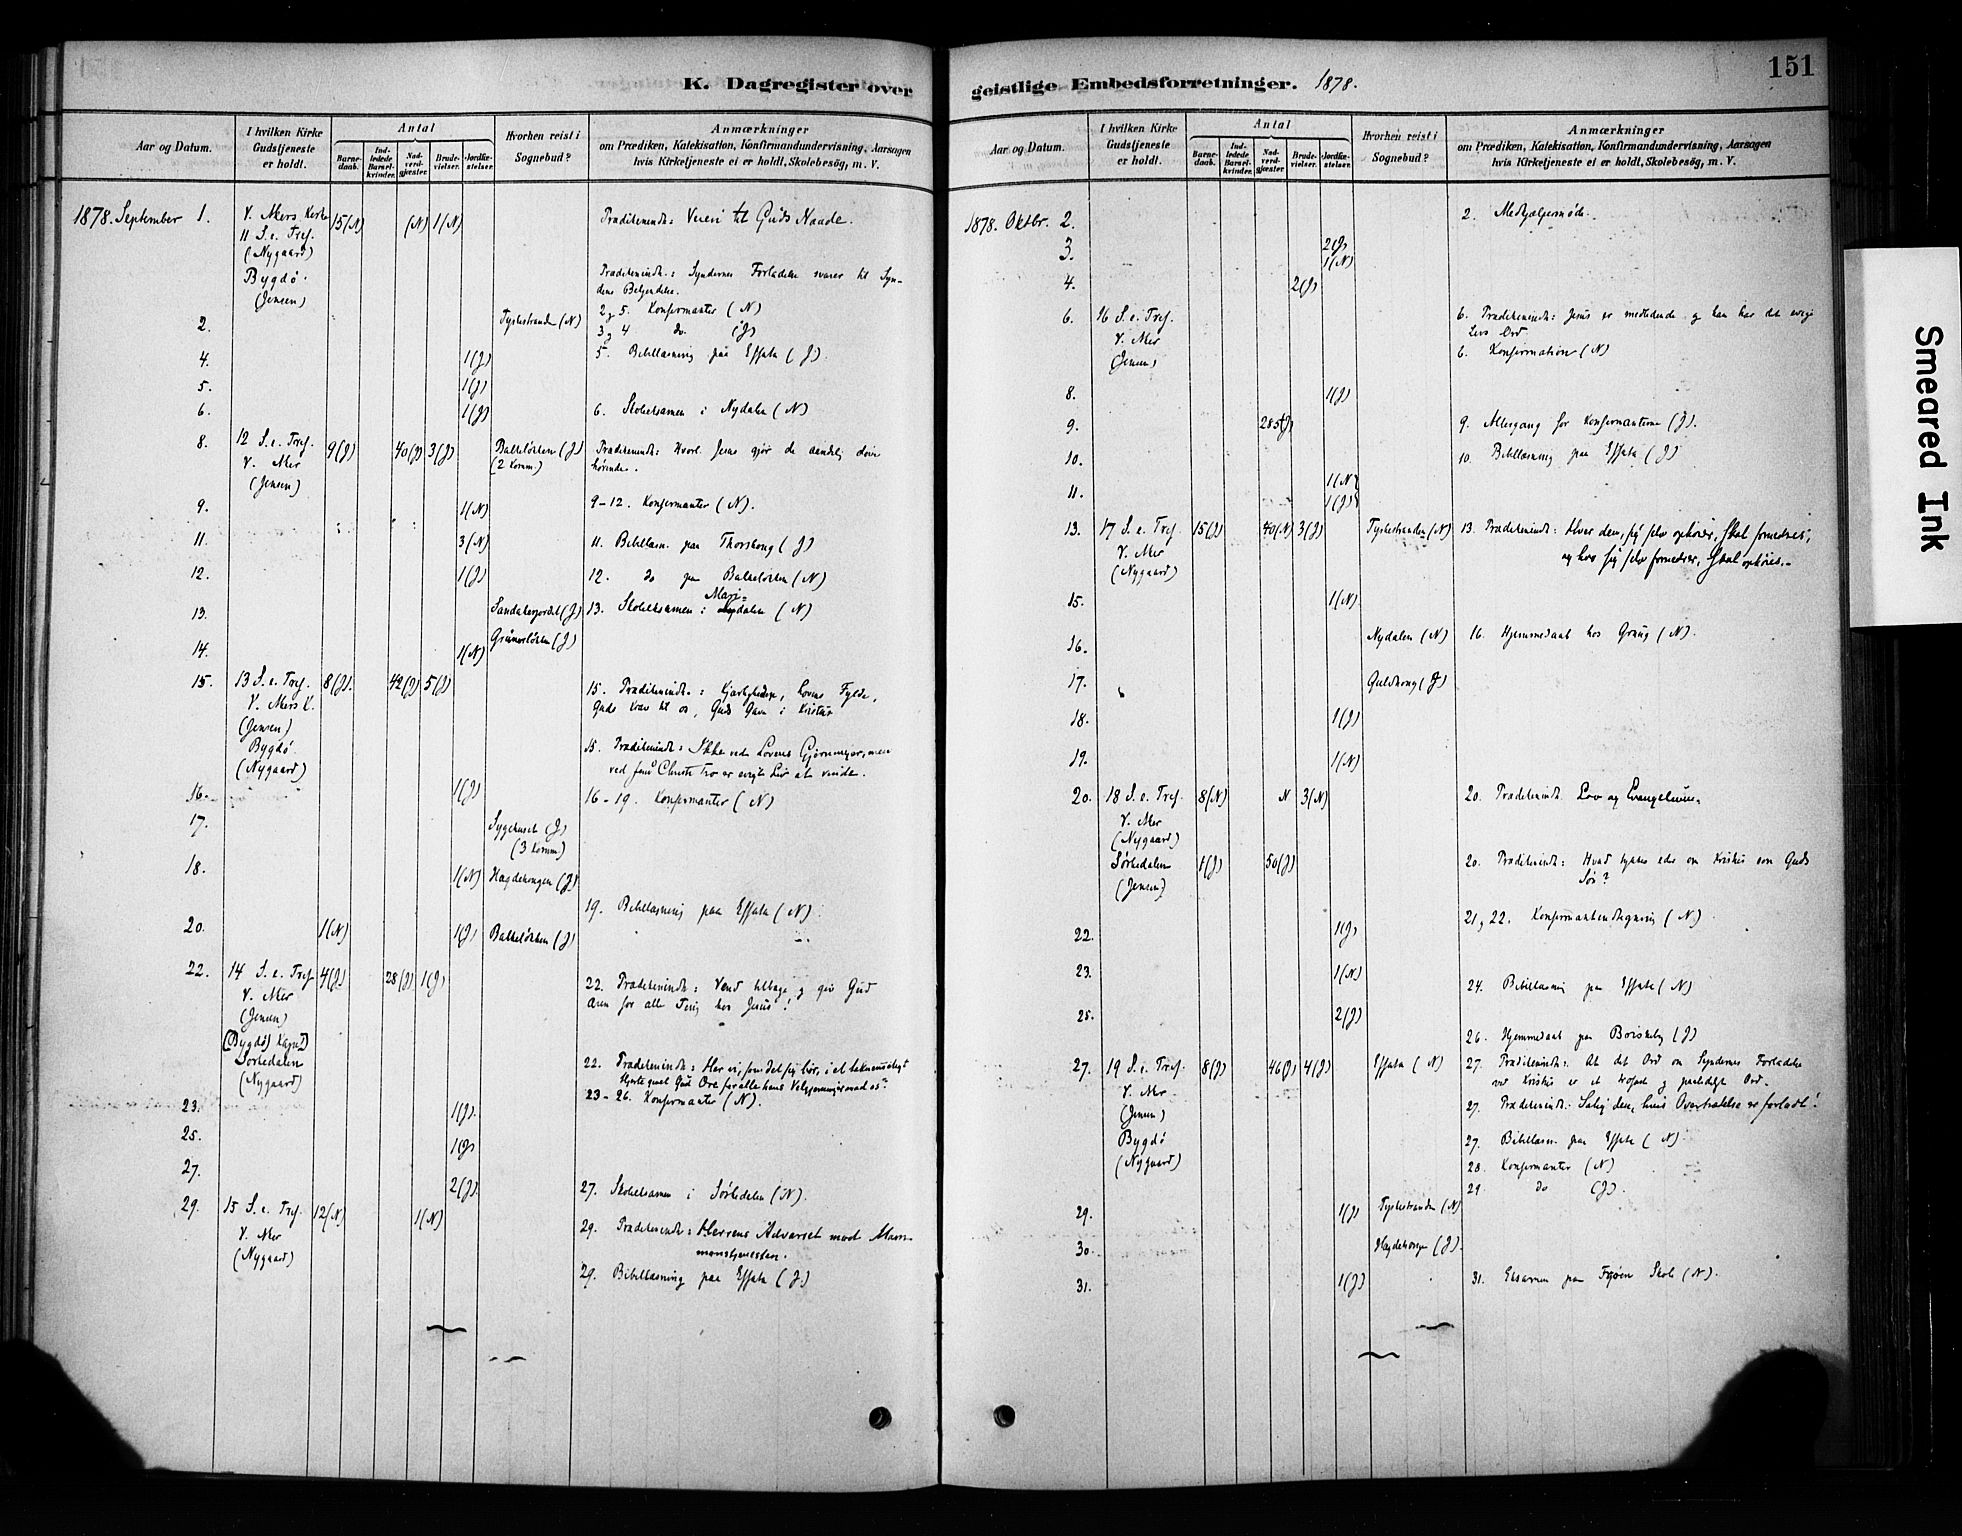 K. Dagregister over
Aar og Datum.
I hvilken Kirke Gudstjeneste er holdt.
Antal
Barnedaab.
Indledede Barselkvinder.
Nadverdgjæster.
Brudevielser.
Jordfæstelser.
Hvorhen reist i Sognebud?
Anmærkninger
om Prædiken, Katekisation, Konfirmandundervisning, Aarsagen
hvis Kirketjeneste ei er holdt, Skolebesøg, m. V.
1878. September 1. V. Akers Kirke 15(N) (N) 1(N) Prædikenindh: Veien til Guds Naade.
11 S. e. Tref.
(Nygaard)
Bygdö. Prædikenindh.: Syndernes Forladelse svarer til Syn-
(Jensen) dens Bekjendelse.
2. (N) 2 & 5. Konfirmanter (N)
3 & 4 do (J)
4. 1(J) 5. Bibellæsning paa Effata (J)
5. 1(J)
6. 1(J) 6. Skoleksamen i Nydalen (N)
8. 12 S. e. Tref. 9(J) 40(J) 3(J) Balkeløkken (J) Prædikenindh: Hvorl. Jesus gjør de aandelig døve
V. Aker (2 Komm.) hørende.
(Jensen)
9. 1(N) 9-12. Konfirmanter (N).
11. 3(N) 11. Bibellæsn. paa Thorshaug (J)
12. 1(J) 12. do paa Balkeløkken (N)
13. Sandakerjordet (J) 13. Skoleksamen i Maridalen (N)
14. 1(N) Grünerløkken (J)
15. 13 S. e. Tref. 8(J). 42(J) 5(J) 15. Prædikenindh.: Kjærligheden, Lovens Fylde,
V. Akers K. Guds Krav til os, Guds Gave i Kristus
(Jensen)
Bygdö 15. Prædikenindh: Ikke ved Lovens Gjerninger, men
(Nygaard) ved Jesu Christi Tro er evigt Liv at vinde.
16. 1(J) 16-19. Konfirmanter (N)
17. Sygehuset (J)
(3 Komm.)
18. 1(N) Hagdehougen (J)
19. Bibellæsning paa Effata (N)
20. 1(N) 1(J) Balkeløkken (J)
22. 14 S. e. Tref 4(J) 28(J) 1(J) 22. Prædikenindh: Vend tilbage og giv Gud
V. Aker Æren for alle Ting hos Jesus!
(Jensen)
(Bygdö)
Sørkedalen 22. Prædikenindh: Har vi, som det sig bør, i et taknemmeligt
(Nygaard) Hjerte givet Gud Ære for alle hans Velgjerninger mod os?
23. 1(J). 23-26. Konfirmanter (N).
25. 1(J)
27. 2(J). 27. Skoleksamen i Sørkedalen (N).
29. 15 S. e. Tref. 12(N) 1(N) 29. Prædikenindh: Herrens Advarsel mod Mam-
V. Aker monstjenesten.
(Nygaard) 29. Bibellæsning paa Effata (J)
geistlige Embedsforretninger. 1878.
151
Aar og Datum.
I hvilken Kirke Gudstjeneste er holdt.
Antal
Barnedaab.
Indledede Barselkvinder.
Nadverdgjæster.
Brudevielser.
Jordfæstelser.
Hvorhen reist i Sognebud?
Anmærkninger
om Prædiken, Katekisation, Konfirmandundervisning, Aarsagen
hvis Kirketjeneste ei er holdt, Skolebesøg, m. V.
1878. Oktbr. 2. 2. Medhjælpermøde.
3. 2(J)
1(N)
4. 2(J)
6. 16 S. e. Tref. 6. Prædikenindh: Jesus er medlidende og han har det evige
V. Aker Livs Ord
(Jensen) 6. Konfirmation (N)
8. 1(J)
9. 285(J) 9. Altergang for Konfirmanterne (J).
10. 10. Bibellæsning paa Effata (J)
11. 1(N)
1(J)
13. 17 S. e. Tref. 15(J) 40(N) 3(J) (N) 13. Prædikenindh: Hver den, sig selv ophøier, skal fornedres;
V. Aker og hvo sig selv fornedrer, skal ophøies.
(Nygaard)
15. 1(N)
16. Nydalen (N) 16. Hjemmedaab hos Graug (N).
17. Guldhoug (J)
18. 1(J)
19. 1(N)
20. 18 S. e. Tref. 8(N) N 3(N) 20. Prædikenindh. Lov og Evangelium.
V. Aker
(Nygaard)
Sørkedalen 1(J) 50(J) 20. Prædikenindh: Hvad tykkes eder om Kristus som Guds
(Jensen) Søn?
21 & 22. Konfirmantindtegning (N)
22. 1(J)
23. 1(N)
24. Bibellæsning paa Effata (N)
25. 2(J)
26. Hjemmedaab paa Briskeby (J)
27. 19 S. e. Tref. 8(J) 46(J) 4(J) Effata (N) 27. Prædikenindh: At det Ord om Syndernes Forladelse
V. Aker ved Kristus er et trofast og paalideligt Ord.
(Jensen) 27. Prædikenindh: Salig den, hvis Overtrædelse er forladt!
Bygdö 27. Bibellæsn. paa Effata (N)
(Nygaard) 28. Konfirmanter (N)
29. do (J).
29. 1(J) (N)
30. Hagdehougen (J).
31. 1(J) 31. Eksamen paa Frøen Skole (N).
Smeared Ink